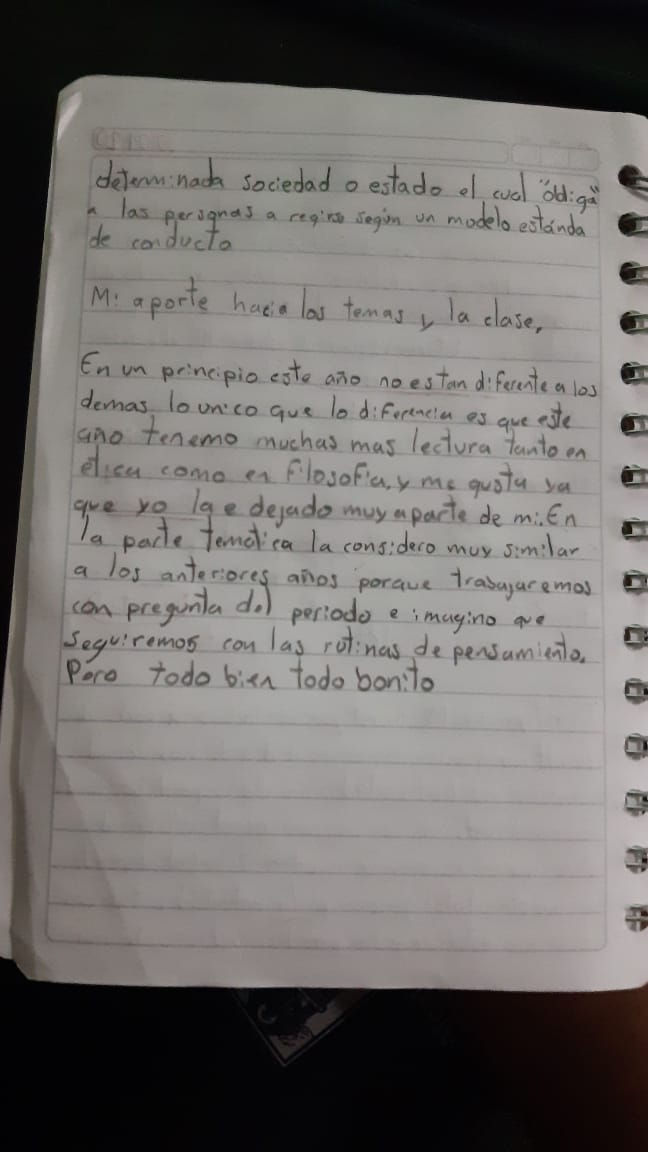 determinada sociedad o estado el cual "obliga"
a las personas a regirse según un modelo estánda
de conducta
Mi aporte hacia los temas y la clase,
En un principio este año no es tan diferente a los
demas, lo unico que lo diferencia es que este
año tenemo muchas mas lectura tanto en
ética como en filosofia, y me gusta ya
que yo la e dejado muy aparte de mi. En
la parte temática la considero muy similar
a los anteriores años porque trabajaremos
con pregunta del periodo e imagino que
seguiremos con las rutinas de pensamiento.
Pero todo bien todo bonito